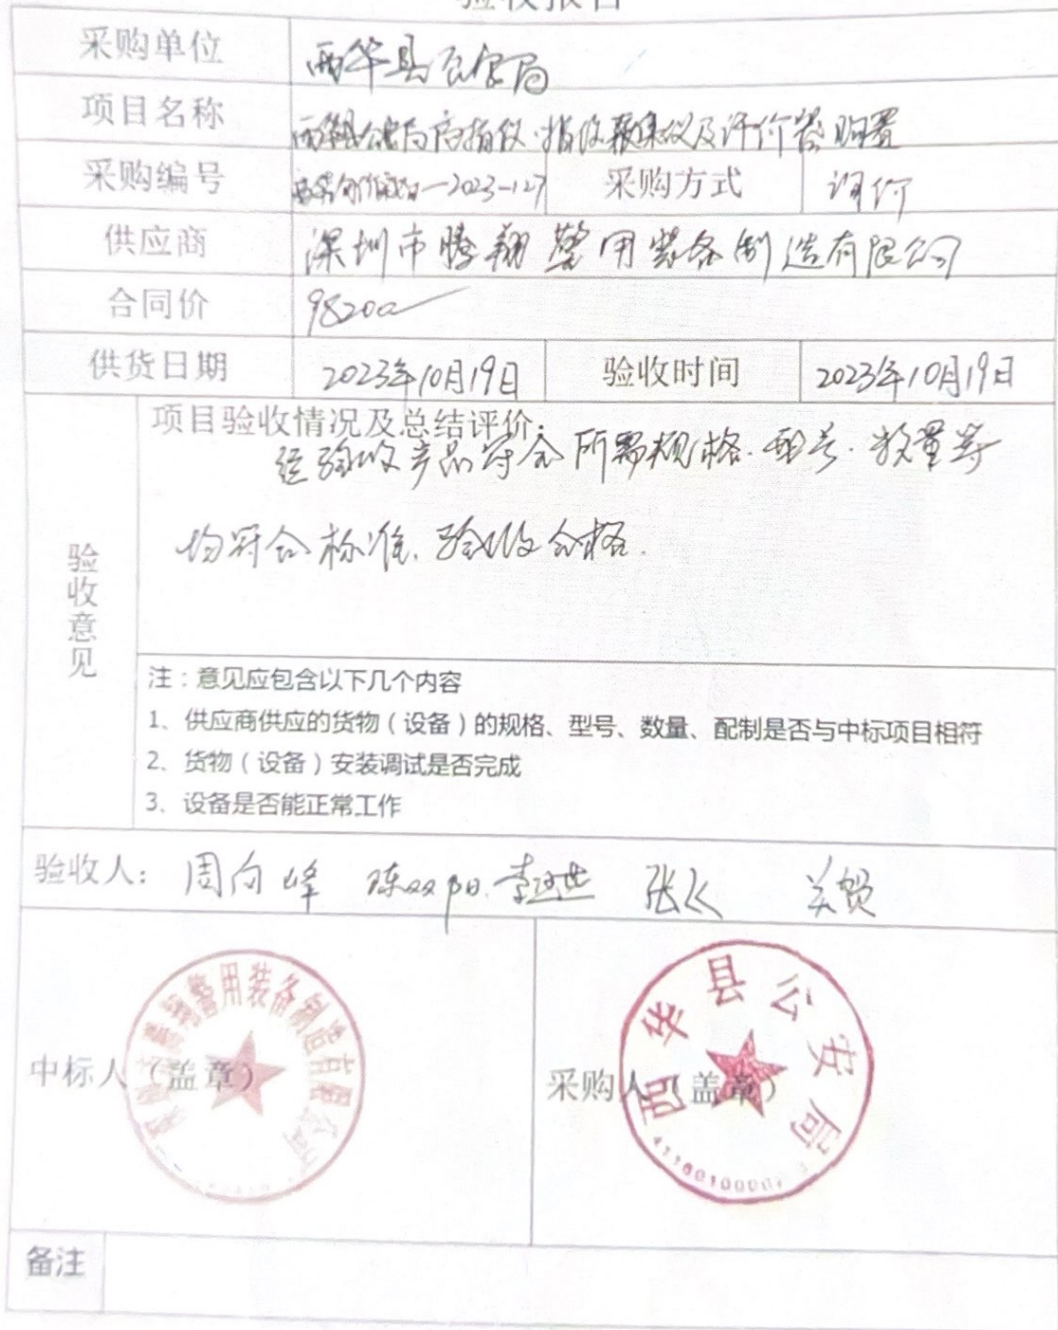 验收报告
采购单位 西华县公安局
项目名称 西华县公安局高拍仪、指纹采集仪及评价器购置
采购编号 西政采询价-2023-127 采购方式 询价
供应商 深圳市腾翔警用装备制造有限公司
合同价 98200
供货日期 2023年10月19日 验收时间 2023年10月19日
验收意见
项目验收情况及总结评价:
经验收产品符合所需规格.型号.数量等
均符合标准.验收合格.
注:意见应包含以下几个内容
1、供应商供应的货物(设备)的规格、型号、数量、配制是否与中标项目相符
2、货物(设备)安装调试是否完成
3、设备是否能正常工作
验收人: 周向峰 陈双阳 张 关贺
中标人(盖章) 采购人(盖章)
深圳市腾翔警用装备制造有限公司
西华县公安局
备注